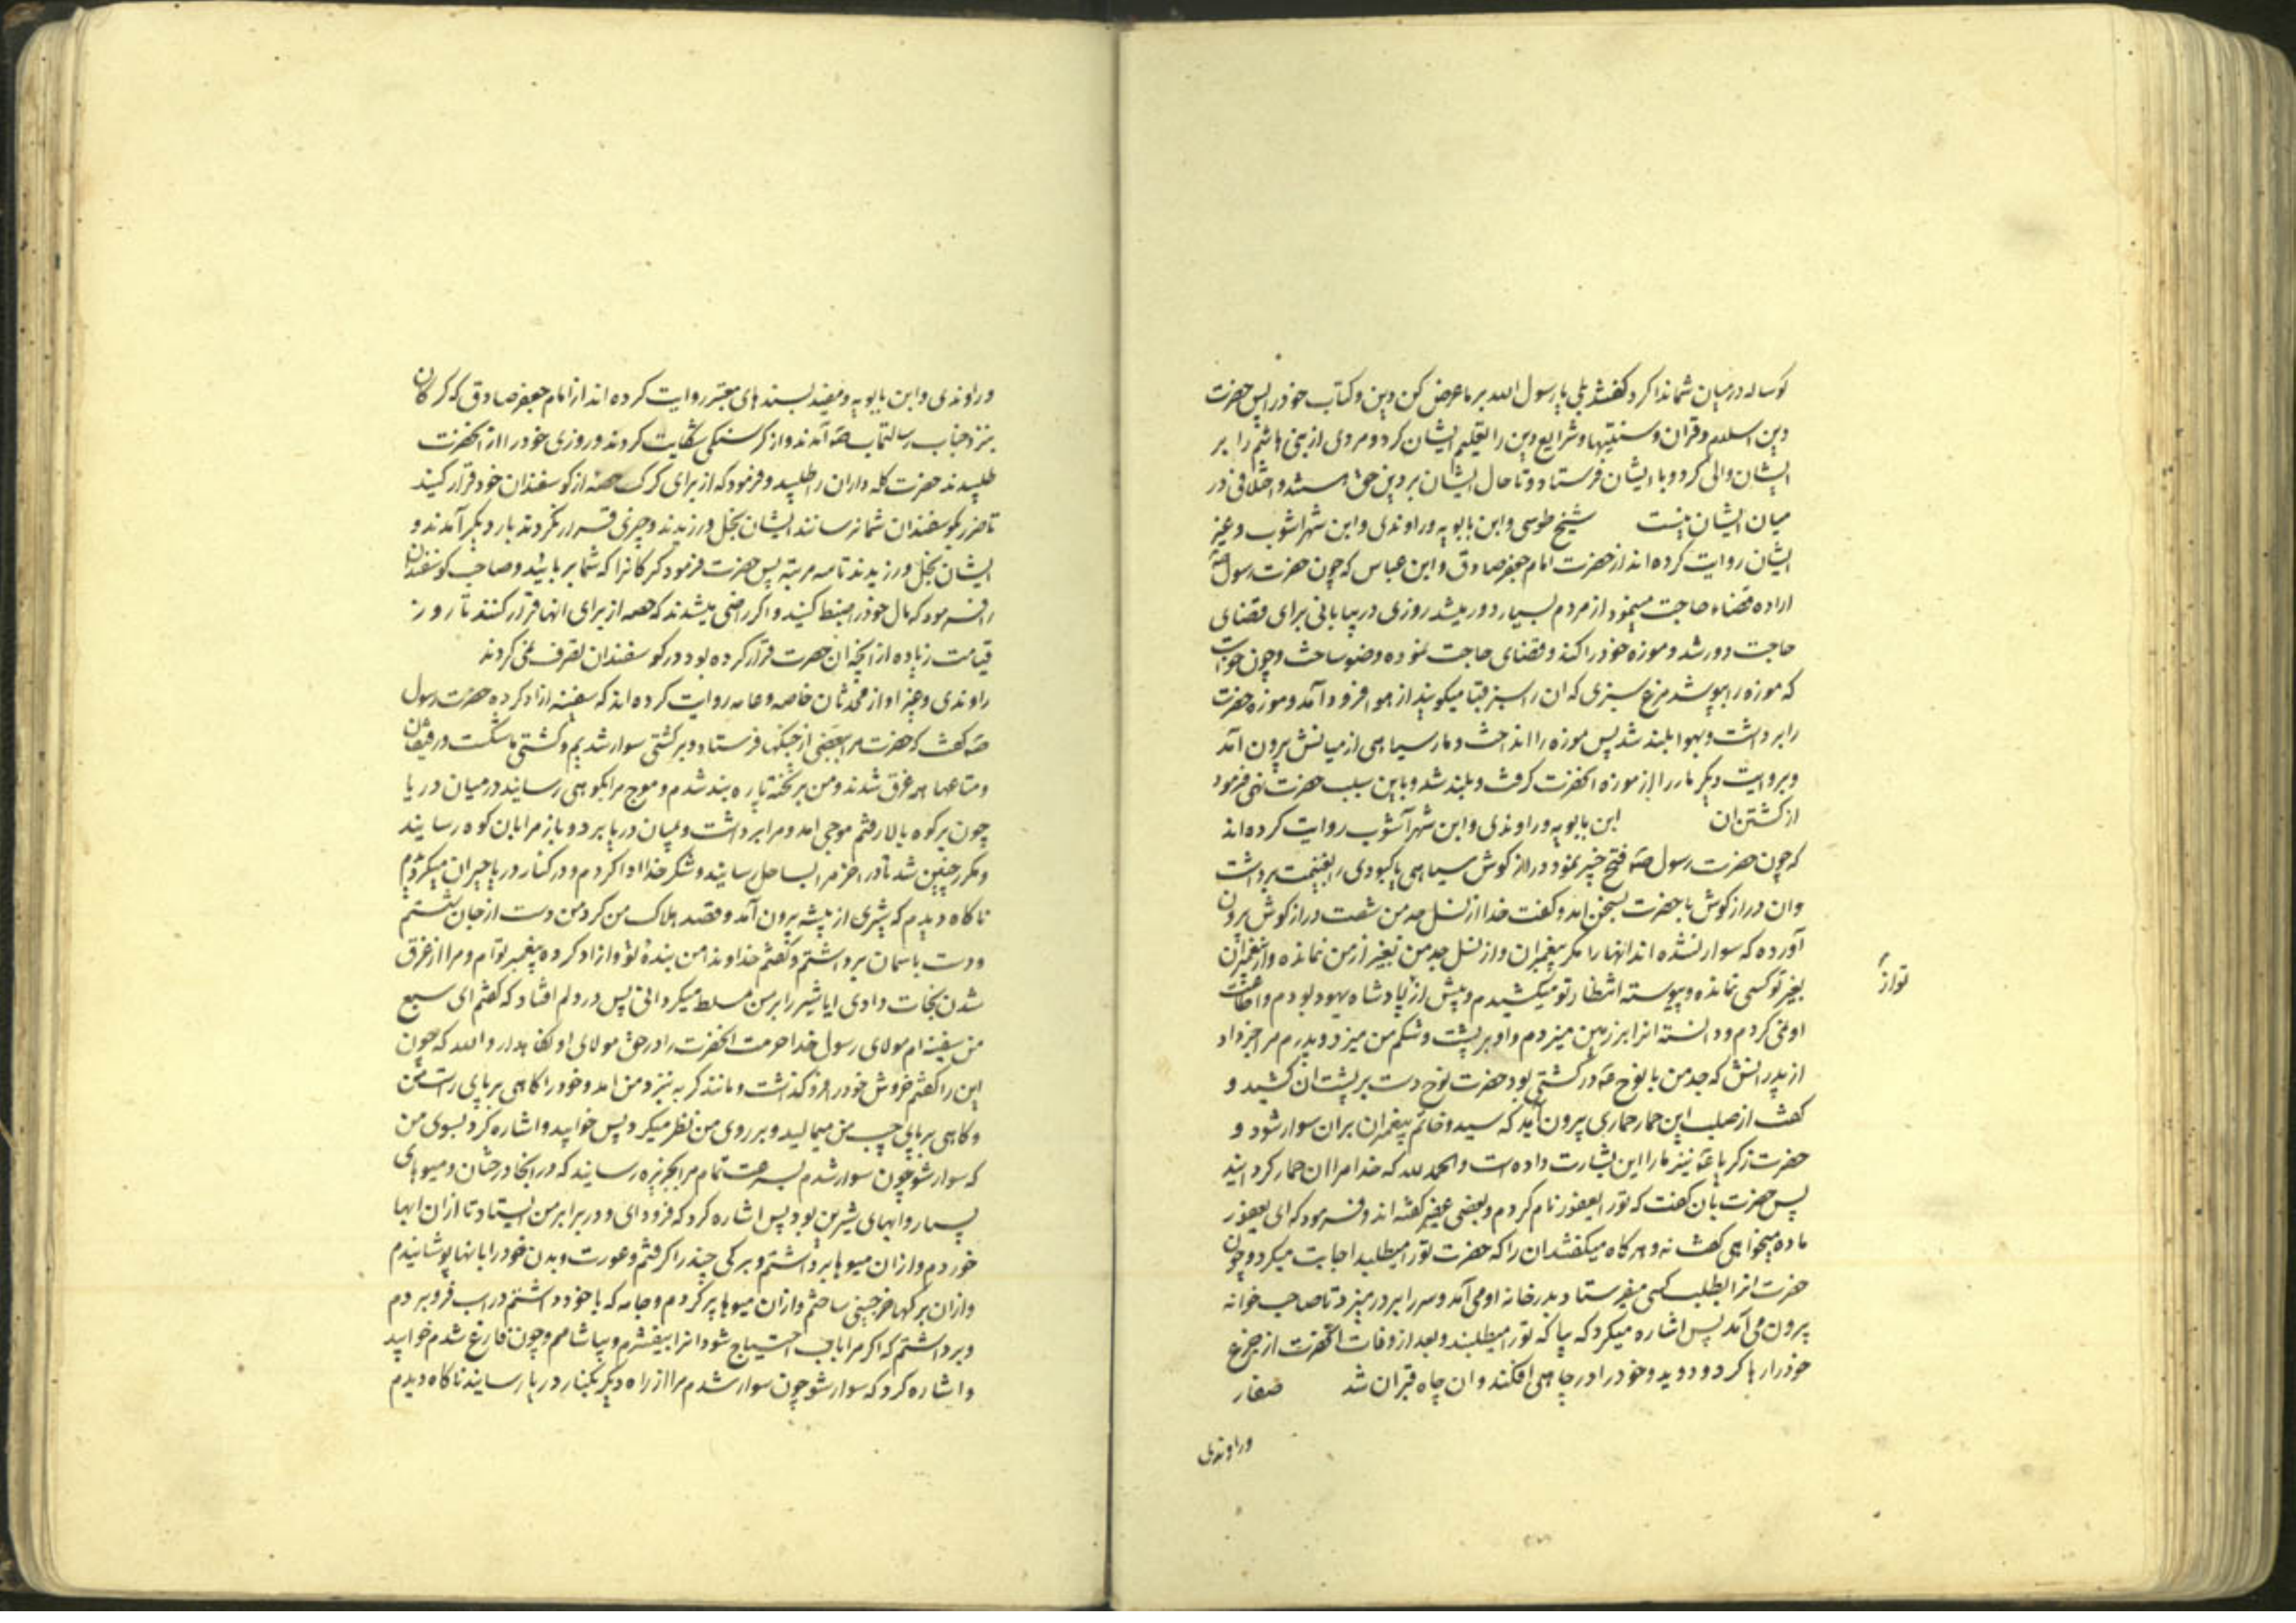 کوساله در میان شما ندا کرد گفتند بلی یا رسول الله بر ما عرض کن دین و کتاب خود را پس حضرت
دین اسلام و قران و سنتیها و شرایع دین را تعلیم ایشان کرد و مردی از بنی هاشم را بر
ایشان والی کرد و با ایشان فرستاد و تا حال ایشان بر دین حق هستند و اختلافی در
میان ایشان نیست شیخ طوسی و ابن بابویه و راوندی و ابن شهراشوب و غیر
ایشان روایت کرده اند از حضرت امام جعفر صادق و ابن عباس که چون حضرت رسول صه
اراده قضاء حاجت مینمود از مردم بسیار دور میشد روزی در بیابانی برای قضای
حاجت دور شد و موزه خود را کند و قضای حاجت نموده وضو ساخت و چون خواست
که موزه را بپوشد مرغ سبزی که ان را سبز قبا میکویند از هوا فرود آمد و موزه حضرت
را برداشت و بهوا بلند شد پس موزه را انداخت و مار سیاهی از میانش بیرون آمد
و بروایت دیکر مار را از موزه انحضرت کرفت و بلند شد و باین سبب حضرت نهی فرمود
از کشتن ان ابن بابویه و راوندی و ابن شهرآشوب روایت کرده اند
که چون حضرت رسول صه فتح خیبر نمود دراز کوش سیاهی یا کبودی را بغنیمت برداشت
وان دراز کوش با حضرت بسخن امد و کفت خدا از نسل جد من شصت دراز کوش بیرون
آورده که سوار نشده اند انها را مکر پیغمبران و از نسل جد من بغیر از من نمانده و از پیغمبران
بغیر تو کسی نمانده و پیوسته انتظار تو میکشیدم و پیش از تو از پادشاه یهود بودم و اطاعت
او نمی کردم و دانسته انرا بر زمین میزدم و او بر پشت و شکم من میزد و پدرم مرا خبر داد
از پدرانش که جد من با نوح عه در کشتی بود حضرت نوح دست بر پشت ان کشید و
کفت از صلب این حمار حماری بیرون آید که سید و خاتم پیغمبران بران سوار شود و
حضرت زکریا عه نیز ما را این بشارت داده است و الحمد لله که خدا مرا ان حمار کردانید
پس حضرت بان کفت که تو را یعفور نام کردم و بعضی عفیر کفته اند و فرمود که ای یعفور
ماده میخواهی کفت نه و هر کاه میکفتند ان را که حضرت تو را میطلبد اجابت میکرد و چون
حضرت انرا بطلب کسی میفرستاد بدر خانه او می آمد و سر را بر در میزد تا صاحب خانه
بیرون می آمد پس اشاره میکرد که بیا که تو را میطلبند و بعد از وفات انحضرت از جزع
خود را رها کرد و دوید و خود را در چاهی افکند و ان چاه قبر ان شد صفار
و راوندی
و راوندی و ابن بابویه و مفید بسندهای معتبر روایت کرده اند از امام جعفر صادق که کرکان
بنزد جناب رسالتماب صه آمدند و از کرسنکی شکایت کردند و روزی خود را از انحضرت
طلبیدند حضرت کله داران را طلبید و فرمود که از برای کرک حصه از کوسفندان خود قرار کنید
تا ضرر بکوسفندان شما نرسانند ایشان بخل ورزیدند و چیزی قرار نکردند بار دیکر آمدند و
ایشان بخل ورزیدند تا سه مرتبه پس حضرت فرمود کرکانرا که شما بربائید و صاحب کوسفندان
را فرمود که مال خود را ضبط کنید و اکر راضی میشدند که حصه از برای انها قرار کنند تا روز
قیامت زیاده از انچه ان حضرت قرار کرده بود در کوسفندان تصرف نمی کردند
راوندی و غیر او از محدثان خاصه و عامه روایت کرده اند که سفینه ازاد کرده حضرت رسول
صه کفت که حضرت مرا ببعضی از جنکها فرستاد و بر کشتی سوار شدیم و کشتی ما شکست و رفیقان
و متاعها همه غرق شدند و من بر تخته پاره بند شدم و موج مرا بکوهی رسانید در میان دریا
چون بر کوه بالا رفتم موجی امد و مرا برداشت و بمیان دریا برد و باز مرا بان کوه رسانید
و مکرر چنین شد تا در اخر مرا بساحل رسانید و شکر خدا ادا کردم و در کنار دریا حیران میکردیدم
ناکاه دیدم که شیری از بیشه بیرون آمد و قصد هلاک من کرد من دست از جان شستم
و دست باسمان برداشتم و کفتم خداوندا من بنده تو و ازاد کرده پیغمبر توام و مرا از غرق
شدن نجات دادی ایا شیر را بر من مسلط میکردانی پس در دلم افتاد که کفتم ای سبع
من سفینه ام مولای رسول خدا حرمت انحضرت را در حق مولای او نکاهدار و الله که چون
این را کفتم خروش خود را فرو کذاشت و مانند کربه بنزد من امد و خود را کاهی بر پای راست من
و کاهی بر پای چپ من میمالید و بر روی من نظر میکرد پس خوابید و اشاره کرد بسوی من
که سوار شو چون سوار شدم بسرعت تمام مرا بجزیره رسانید که در انجا درختان و میوهای
بسیار و ابهای شیرین بود پس اشاره کرد که فرود ای و در برابر من ایستاد تا ازان ابها
خوردم و ازان میوها برداشتم و برکی چند را کرفتم و عورت و بدن خود را با انها پوشانیدم
و ازان برکها خرجینی ساختم و ازان میوها پر کردم و جامه که با خود داشتم در اب فرو بردم
و برداشتم که اکر مرا باب احتیاج شود انرا بیفشرم و بیاشامم و چون فارغ شدم خوابید
و اشاره کرد که سوار شو چون سوار شدم مرا از راه دیکر بکنار دریا رسانید ناکاه دیدم